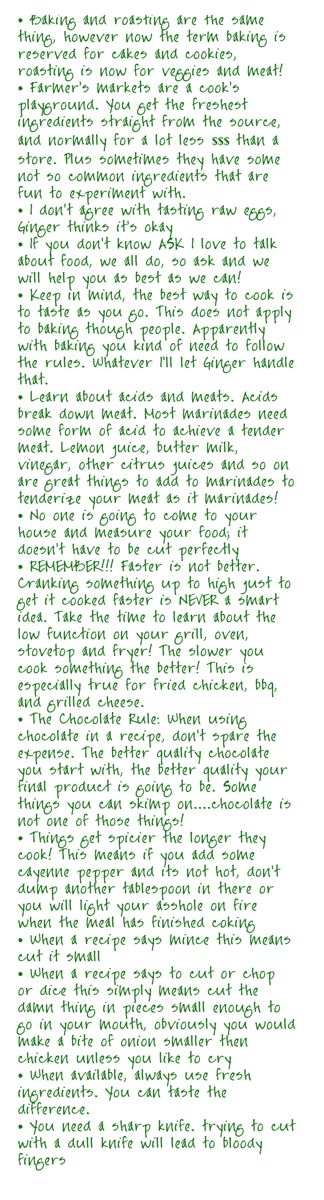 • Baking and roasting are the same
thing, however now the term baking is
reserved for cakes and cookies,
roasting is now for veggies and meat!
• Farmer's markets are a cook's
playground. You get the freshest
ingredients straight from the source,
and normally for a lot less $$$ than a
store. Plus sometimes they have some
not so common ingredients that are
fun to experiment with.
• I don't agree with tasting raw eggs,
Ginger thinks it's okay
• If you don't know ASK I love to talk
about food, we all do, so ask and we
will help you as best as we can!
• Keep in mind, the best way to cook is
to taste as you go. This does not apply
to baking though people. Apparently
with baking you kind of need to follow
the rules. Whatever I'll let Ginger handle
that.
• Learn about acids and meats. Acids
break down meat. Most marinades need
some form of acid to achieve a tender
meat. Lemon juice, butter milk,
vinegar, other citrus juices and so on
are great things to add to marinades to
tenderize your meat as it marinades!
• No one is going to come to your
house and measure your food; it
doesn't have to be cut perfectly
• REMEMBER!!! Faster is not better.
Cranking something up to high just to
get it cooked faster is NEVER a smart
idea. Take the time to learn about the
low function on your grill, oven,
stovetop and fryer! The slower you
cook something the better! This is
especially true for fried chicken, bbq,
and grilled cheese.
• The Chocolate Rule: When using
chocolate in a recipe, don't spare the
expense. The better quality chocolate
you start with, the better quality your
final product is going to be. Some
things you can skimp on....chocolate is
not one of those things!
• Things get spicier the longer they
cook! This means if you add some
cayenne pepper and its not hot, don't
dump another tablespoon in there or
you will light your asshole on fire
when the meal has finished coking
• When a recipe says mince this means
cut it small
• When a recipe says to cut or chop
or dice this simply means cut the
damn thing in pieces small enough to
go in your mouth, obviously you would
make a bite of onion smaller then
chicken unless you like to cry
• When available, always use fresh
ingredients. You can taste the
difference.
• You need a sharp knife. trying to cut
with a dull knife will lead to bloody
fingers